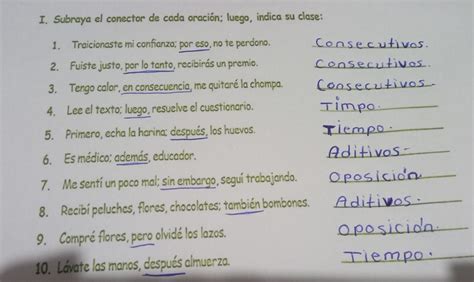 I. Subraya el conector de cada oración; luego, indica su clase:
1. Traicionaste mi confianza; por eso, no te perdono. Consecutivos.
2. Fuiste justo, por lo tanto, recibirás un premio. Consecutivos.
3. Tengo calor, en consecuencia, me quitaré la chompa. Consecutivos
4. Lee el texto; luego, resuelve el cuestionario. Timpo.
5. Primero, echa la harina; después, los huevos. Tiempo.
6. Es médico; además, educador. Aditivos
7. Me sentí un poco mal; sin embargo, seguí trabajando. Oposición
8. Recibí peluches, flores, chocolates; también bombones. Aditivos.
9. Compré flores, pero olvidé los lazos. Oposición.
10. Lávate las manos, después almuerza. Tiempo.